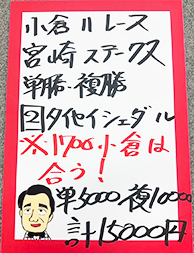 小倉11レース
宮崎ステークス
単勝・複勝
2タイセイシェダル
※1700小倉は
合う！
単5000複10000
計15000円